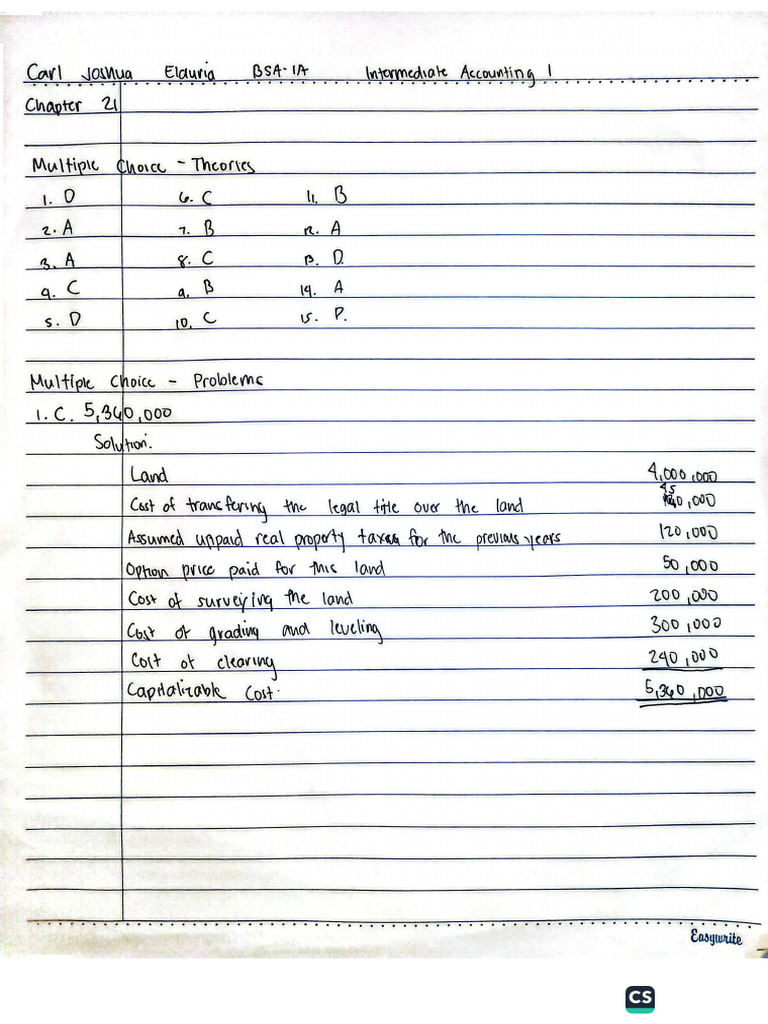 Carl Joshua Elauria BSA-1A Intermediate Accounting 1
Chapter 21
Multiple Choice - Theories
1. D 6. C 11. B
2. A 7. B 12. A
3. A 8. C 13. D
4. C 9. B 14. A
5. D 10. C 15. D.
Multiple Choice - Problems
1. C. 5,340,000
Solution:
Land 4,000,000
45
Cost of transfering the legal title over the land 0,000
Assumed unpaid real property taxes for the previous years 120,000
Option price paid for this land 50,000
Cost of surveying the land 200,000
Cost of grading and leveling 300,000
Cost of clearing 240,000
Capitalizable Cost. 5,340,000
Easywrite
CS